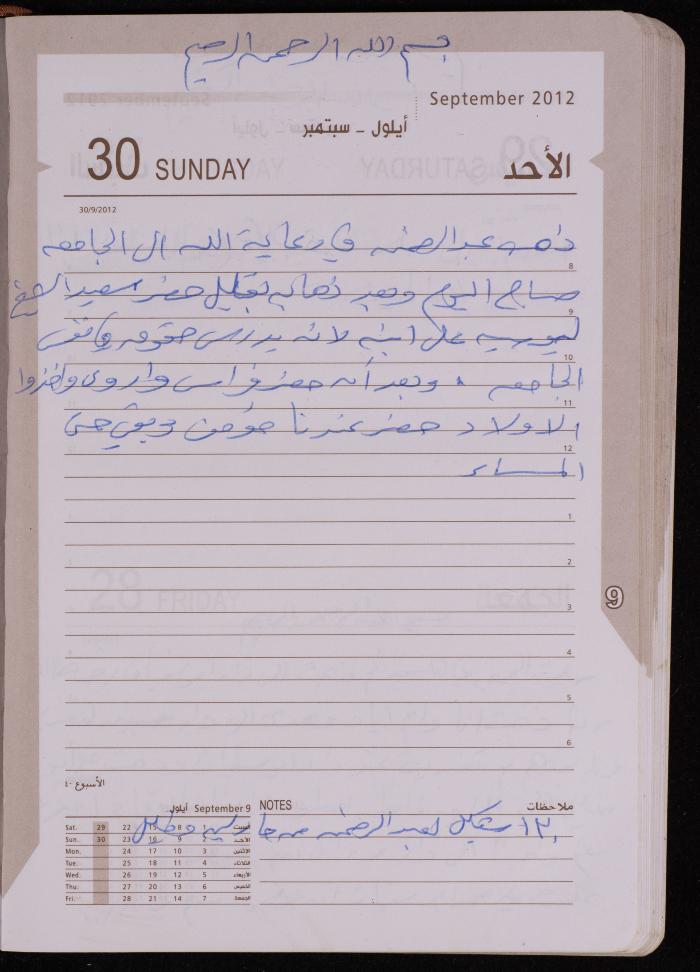 بسم الله الرحمن الرحيم
September 2012
أيلول - سبتمبر
30 SUNDAY
الأحد
30/9/2012
ذهب عبد الرحمن في رعاية الله الى الجامعه
8
صباح اليوم وبعد ذهابه بقليل حضر سعيد
9
على ابنه لانه يدرس حقوق في نفس
10
الجامعه . وبعد أن حضر فراس واروى واخذوا
11
الاولاد حضر عندنا مؤمن وبقي حتى
12
المساء
1
2
3
4
5
6
9
الأسبوع ٤٠
September 9 أيلول
NOTES
ملاحظات
١٣٠ شيكل لعبد الرحمن من
Sat. 29 22 15 8 1 السبت
Sun. 30 23 16 9 2 الأحد
Mon. 24 17 10 3 الاثنين
Tue. 25 18 11 4 الثلاثاء
Wed. 26 19 12 5 الأربعاء
Thu. 27 20 13 6 الخميس
Fri. 28 21 14 7 الجمعة